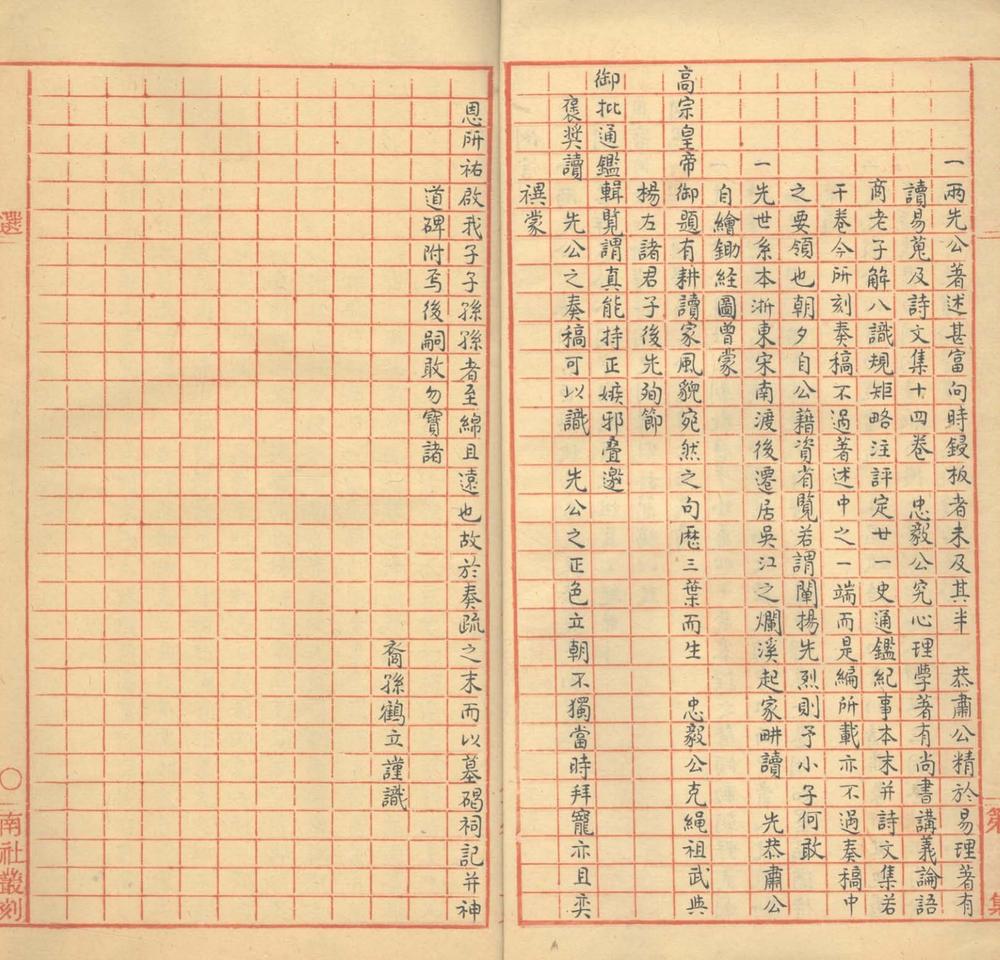 一兩先公著述甚富向時鋟板者未及其半　恭肅公精於易理著有
讀易蒐及詩文集十四卷　忠毅公究心理學著有尚書講義論語
商老子解八識規矩略注評定廿一史通鑑紀事本末并詩文集若
干卷今所刻奏稿不過著述中之一端而是編所載亦不過奏稿中
之要領也朝夕自公藉資省覽若謂闡揚先烈則予小子何敢
一先世系本浙東宋南渡後遷居吳江之爛溪起家畊讀　先恭肅公
自繪鋤經圖曾蒙
高宗皇帝御題有耕讀家風貌宛然之句歷三葉而生　忠毅公克繩祖武與
楊左諸君子後先殉節
御批通鑑輯覽謂真能持正嫉邪疊邀
褒獎讀　先公之奏稿可以識　先公之正色立朝不獨當時拜寵亦且奕
禩蒙
恩所祐啟我子子孫孫者至綿且遠也故於奏疏之末而以墓碣祠記并神
道碑附焉後嗣敢勿寶諸
裔孫鶴立謹識
第　集
選
〇
南社叢刻